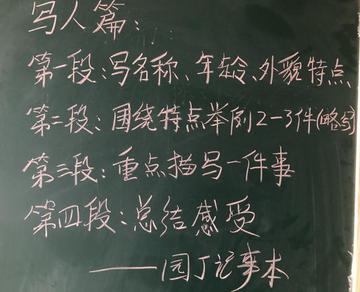 写人篇:
第一段:写名称、年龄、外貌特点
第二段:围绕特点举例2-3件(略写)
第三段:重点描写一件事
第四段:总结感受
——园丁记事本